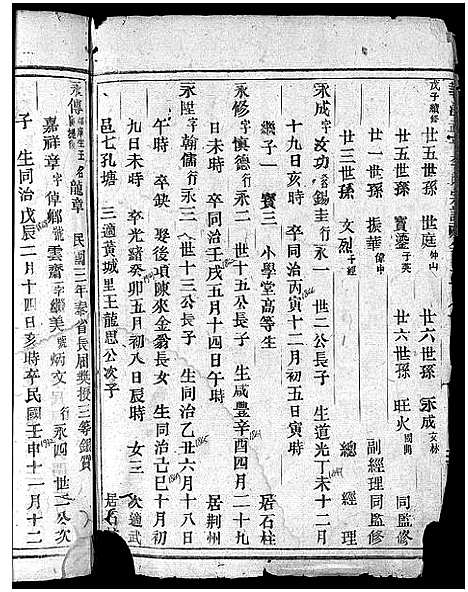 戊子續修
廿五世孫 世庭 仲山 廿六世孫 永成 文林
廿五世孫 寶鎏 子英 廿六世孫 旺火 國典 同監修
廿一世孫 振華 偉中 副經理同監修
廿三世孫 文烈 子經 總經理
永成 字 汝功 名 錫圭 行 永一 世二公長子 生道光丁未十二月
1847
十九日亥時 卒同治丙寅十二月初五日寅時
1866
繼子一 寶三 小學堂高等生 居石柱
永修 字 慎德 行 永二 世十五公長子 生咸豐辛酉四月二十九
日未時 卒同治壬戌五月十四日午時 居荆州
1862
永陞 字 翰儒 行 永三 世十三公長子 生同治乙丑六月十八日
1865
午時 卒缺 娶後項陳來金翁長女 生同治己巳十月初
1869
九日未時 卒光緒癸卯五月初八日辰時 女三 次適武
1903
邑七孔塘 三適黃城里王龍恩公次子 居石
永傳 名 龍章 民國三年泰省長周獎授三等銀質
嘉祥章 字 倬鄉 號 雲齋 字 繼美 號 炳文 行 永四 世二公次
子 生同治戊辰二月十四日亥時卒民國壬申十一月十二